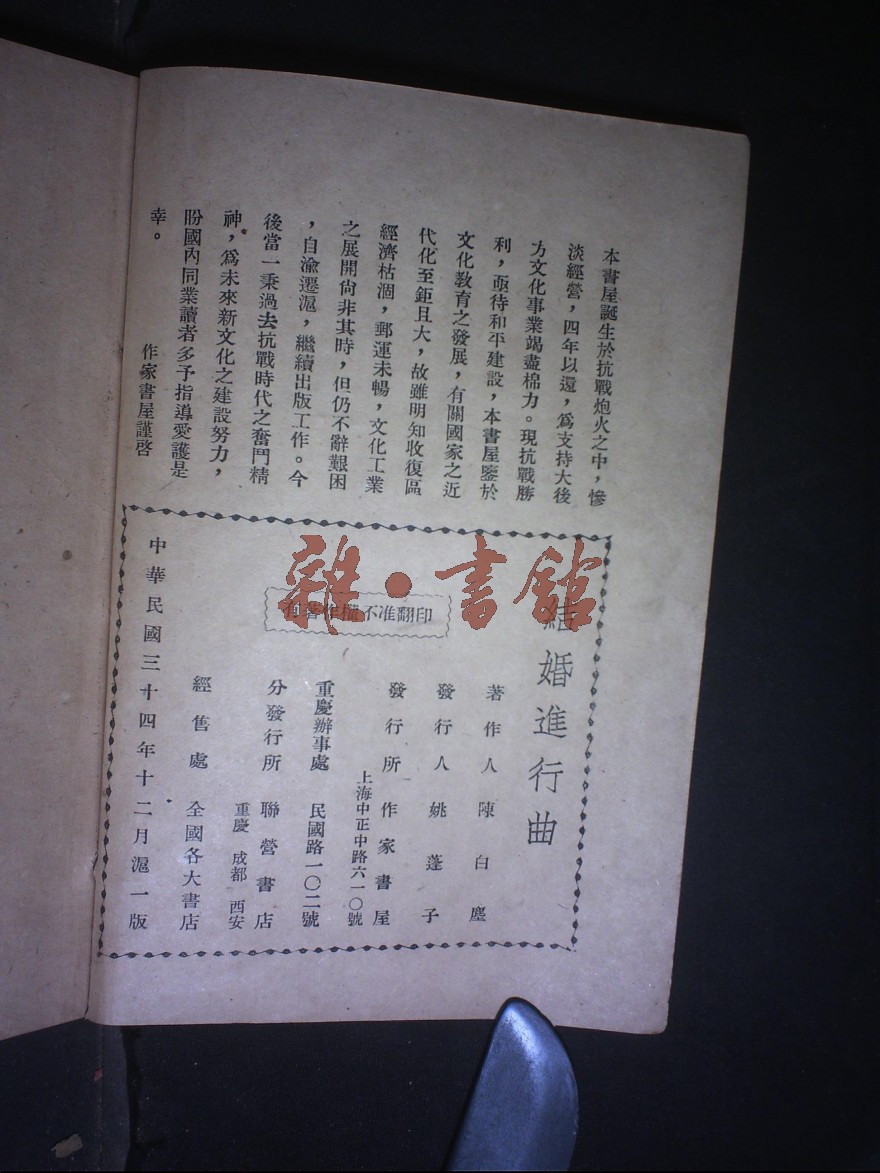 本書屋誕生於抗戰炮火之中，慘
淡經營，四年以還，爲支持大後
方文化事業竭盡棉力。現抗戰勝
利，亟待和平建設，本書屋鑒於
文化教育之發展，有關國家之近
代化至鉅且大，故雖明知收復區
經濟枯涸，郵運未暢，文化工業
之展開尙非其時，但仍不辭艱困
，自渝遷滬，繼續出版工作。今
後當一秉過去抗戰時代之奮鬥精
神，爲未來新文化之建設努力，
盼國內同業讀者多予指導愛護是
幸。
作家書屋謹啓
結婚進行曲
著作人 陳白塵
發行人 姚蓬子
發行所 作家書屋
上海中正中路六一〇號
重慶辦事處 民國路一〇二號
分發行所 聯營書店
重慶 成都 西安
經售處 全國各大書店
中華民國三十四年十二月滬一版
有著作權不准翻印
雜·書館